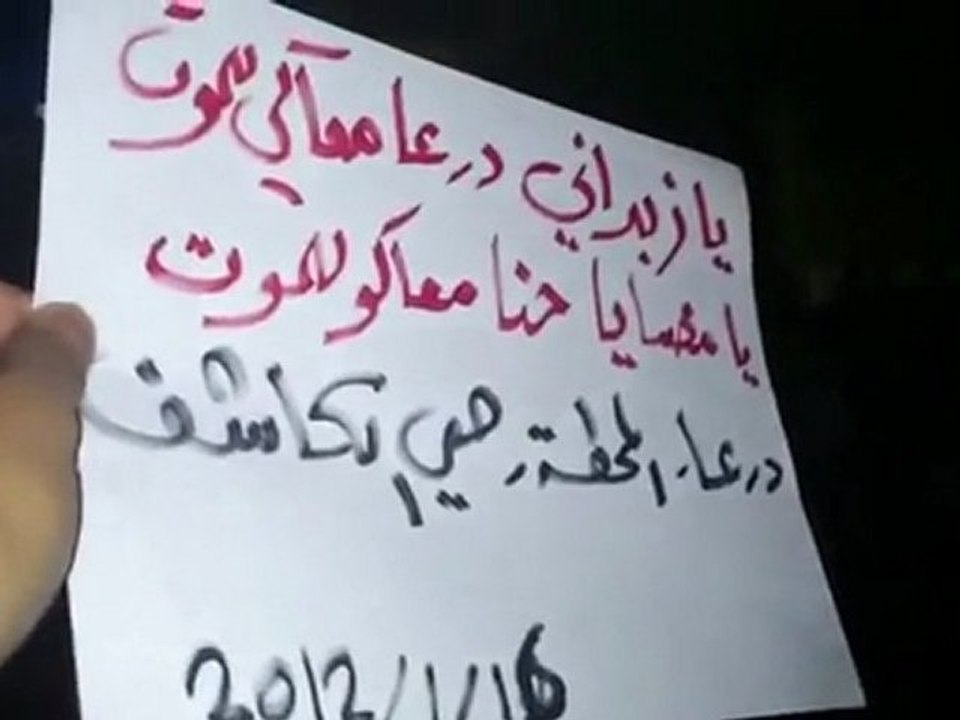 يا زبداني درعا معاكي للموت
يا مضايا حنا معاكو للموت
درعا. المحطة. حي الكاشف
2012/1/16